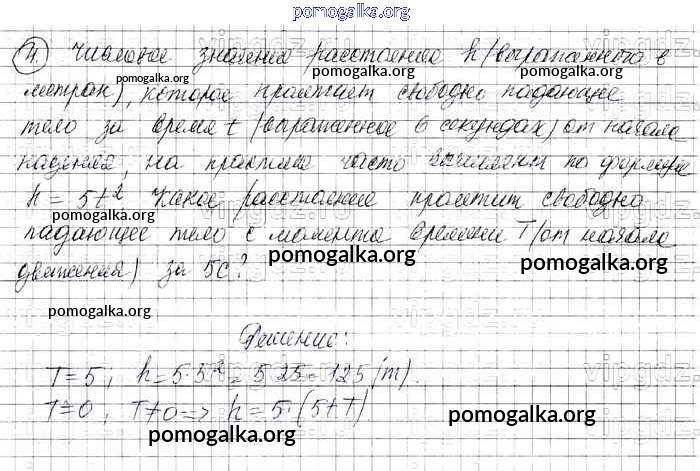 pomogalka.org
4. Числовое значение расстояния h (выраженного в
pomogalka.org pomogalka.org pomogalka.org
метрах), которое пролетает свободно падающее
pomogalka.org
тело за время t (выраженное в секундах) от начала
падения, на практике часто вычисляют по формуле
h = 5t². Какое расстояние пролетит свободно
pomogalka.org pomogalka.org
падающее тело с момента времени T (от начала
движения) за 5с?
pomogalka.org pomogalka.org
pomogalka.org
Решение:
T=5; h=5·5²=5·25=125 (m).
T=0; T≠0=> h=5·(5+T)
pomogalka.org pomogalka.org